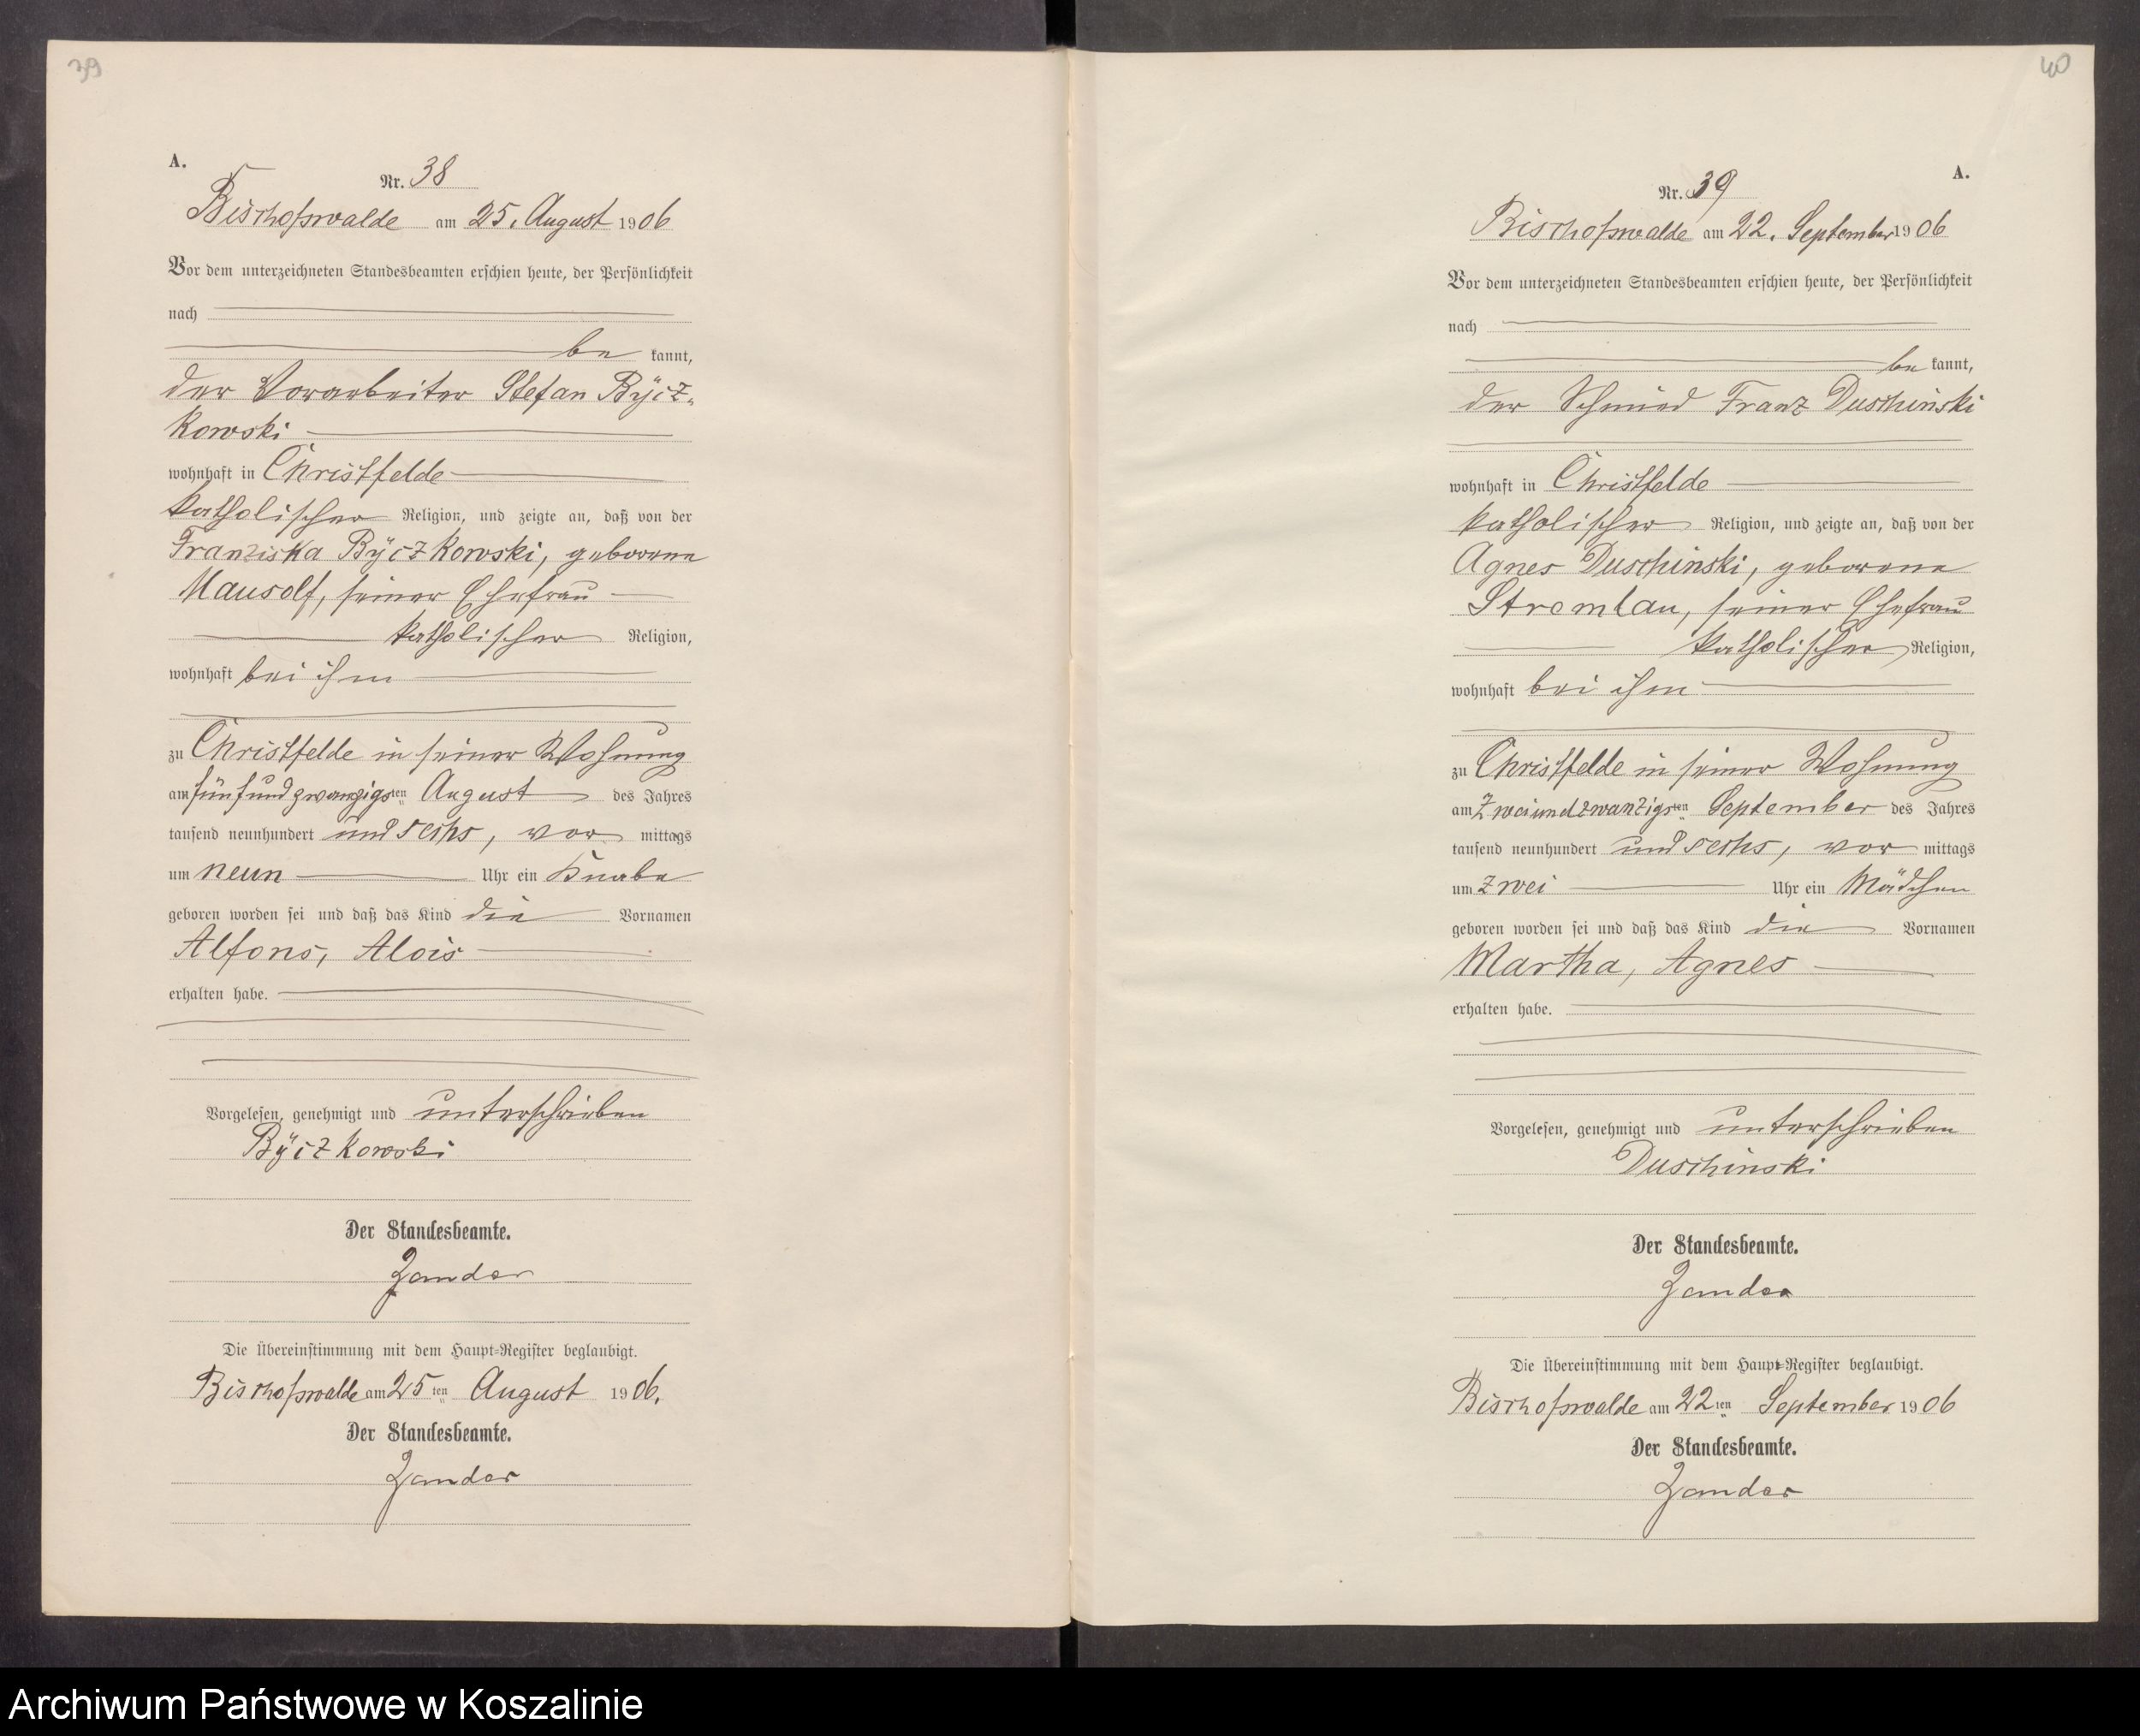 39
A.
Nr. 38
Bischofswalde am 25. August 1906
Vor dem unterzeichneten Standesbeamten erschien heute, der Persönlichkeit
nach
be kannt,
der Vorarbeiter Stefan Bÿcz-
kowski
wohnhaft in Christfelde
katholischer Religion, und zeigte an, daß von der
Franziska Bÿczkowski, geborene
Mausolf, seiner Ehefrau
katholischer Religion,
wohnhaft bei ihm
zu Christfelde in seiner Wohnung
am fünfundzwanzigsten August des Jahres
tausend neunhundert und sechs, vor mittags
um neun Uhr ein Knabe
geboren worden sei und daß das Kind die Vornamen
Alfons, Alois
erhalten habe.
Vorgelesen, genehmigt und unterschrieben
Bÿczkowski
Der Standesbeamte.
Zander
Die Übereinstimmung mit dem Haupt-Register beglaubigt.
Bischofswalde am 25ten August 1906.
Der Standesbeamte.
Zander
40
A.
Nr. 39
Bischofswalde am 22. September 1906
Vor dem unterzeichneten Standesbeamten erschien heute, der Persönlichkeit
nach
be kannt,
der Schmied Franz Duschinski
wohnhaft in Christfelde
katholischer Religion, und zeigte an, daß von der
Agnes Duschinski, geborene
Stremlau, seiner Ehefrau
katholischer Religion,
wohnhaft bei ihm
zu Christfelde in seiner Wohnung
am zweiundzwanzigsten September des Jahres
tausend neunhundert und sechs, vor mittags
um zwei Uhr ein Mädchen
geboren worden sei und daß das Kind die Vornamen
Martha, Agnes
erhalten habe.
Vorgelesen, genehmigt und unterschrieben
Duschinski
Der Standesbeamte.
Zander
Die Übereinstimmung mit dem Haupt-Register beglaubigt.
Bischofswalde am 22ten September 1906
Der Standesbeamte.
Zander
Archiwum Państwowe w Koszalinie